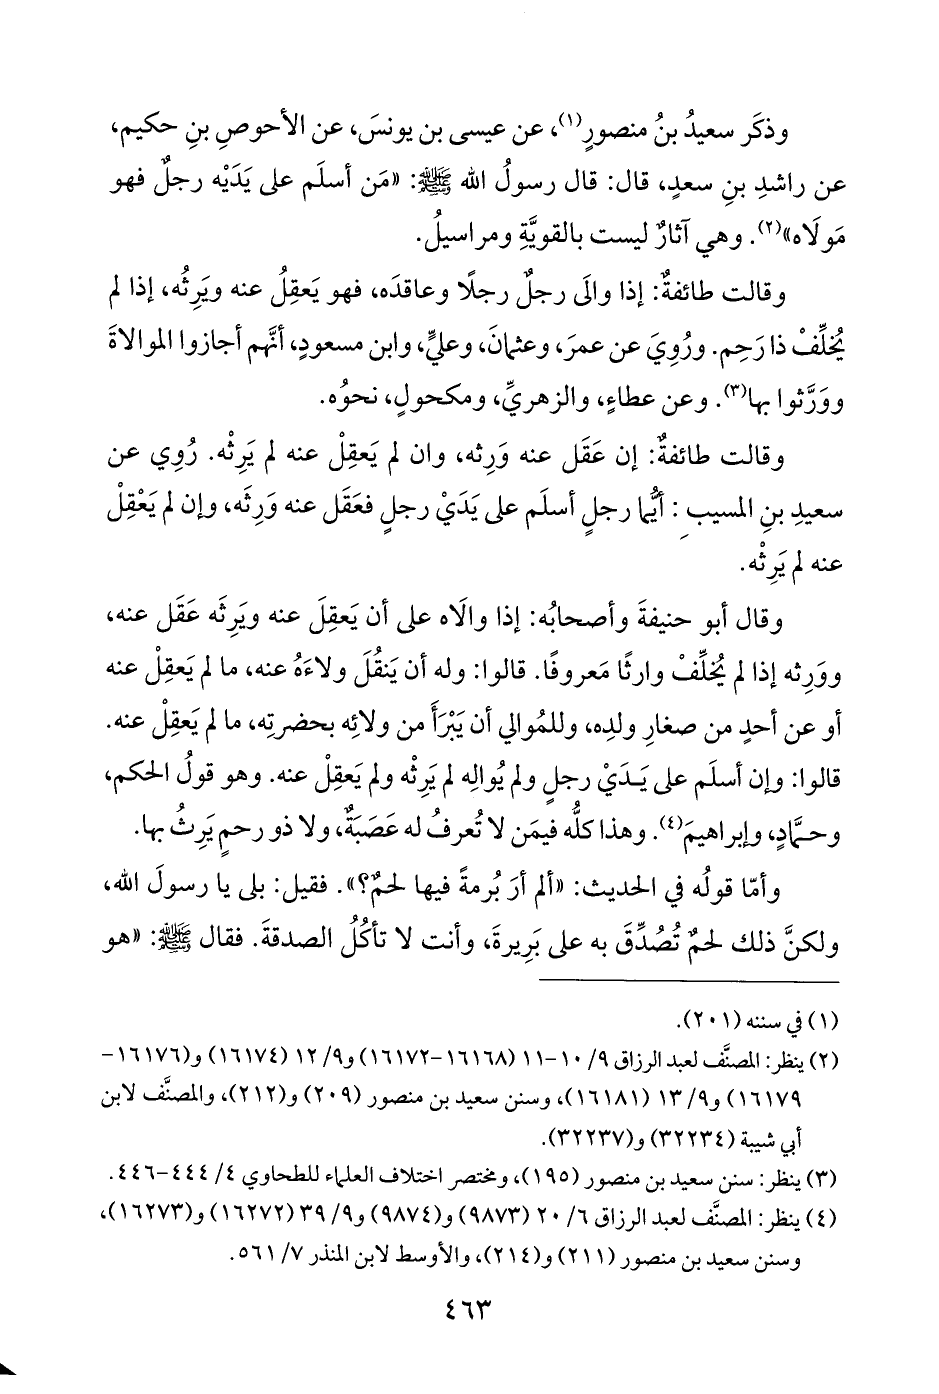 وذكَر سعيدُ بنُ منصورٍ(١)، عن عيسى بن يونسَ، عن الأحوصِ بنِ حكيم،
عن راشدِ بنِ سعدٍ، قال: قال رسولُ الله ﷺ: «مَن أسلَم على يَدَيْه رجلٌ فهو
مَولَاه»(٢). وهي آثارٌ ليست بالقويَّةِ ومراسيلُ.
وقالت طائفةٌ: إذا والَى رجلٌ رجلًا وعاقدَه، فهو يَعقِلُ عنه ويَرِثُه، إذا لم
يُخلِّفْ ذا رَحِم. ورُوِيَ عن عمرَ، وعثمانَ، وعليٍّ، وابن مسعودٍ، أنَّهم أجازوا الموالاةَ
ووَرَّثوا بها(٣). وعن عطاءٍ، والزهريِّ، ومكحولٍ، نحوُه.
وقالت طائفةٌ: إن عَقَل عنه وَرِثه، وان لم يَعقِلْ عنه لم يَرِثْه. رُوِي عن
سعيدِ بنِ المسيبِ: أيُّما رجلٍ أسلَم على يَدَيْ رجلٍ فعَقَل عنه وَرِثَه، وإن لم يَعْقِلْ
عنه لم يَرِثْه.
وقال أبو حنيفةَ وأصحابُه: إذا والَاه على أن يَعقِلَ عنه ويَرِثَه عَقَل عنه،
ووَرِثه إذا لم يُخلِّفْ وارثًا مَعروفًا. قالوا: وله أن يَنقُلَ ولاءَهُ عنه، ما لم يَعقِلْ عنه
أو عن أحدٍ من صغارِ ولدِه، وللمُوالي أن يَبْرَأَ من ولائِه بحضرتِه، ما لم يَعقِلْ عنه.
قالوا: وإن أسلَم على يَدَيْ رجلٍ ولم يُوالِه لم يَرِثْه ولم يَعقِلْ عنه. وهو قولُ الحكم،
وحمَّادٍ، وإبراهيمَ(٤). وهذا كلُّه فيمَن لا تُعرفُ له عَصَبَةٌ، ولا ذو رحمٍ يَرِثُ بها.
وأمّا قولُه في الحديث: «ألم أرَ بُرمةً فيها لحمٌ؟». فقيل: بلى يا رسولَ الله،
ولكنَّ ذلك لحمٌ تُصُدِّقَ به على بَرِيرةَ، وأنت لا تأكُلُ الصدقةَ. فقال ﷺ: «هو
(١) في سننه (٢٠١).
(٢) ينظر: المصنَّف لعبد الرزاق ٩/ ١٠-١١ (١٦١٦٨-١٦١٧٢) و٩/ ١٢ (١٦١٧٤) و(١٦١٧٦-
١٦١٧٩) و٩/ ١٣ (١٦١٨١)، وسنن سعيد بن منصور (٢٠٩) و(٢١٢)، والمصنَّف لابن
أبي شيبة (٣٢٢٣٤) و(٣٢٢٣٧).
(٣) ينظر: سنن سعيد بن منصور (١٩٥)، ومختصر اختلاف العلماء للطحاوي ٤/ ٤٤٤-٤٤٦.
(٤) ينظر: المصنَّف لعبد الرزاق ٦/ ٢٠ (٩٨٧٣) و(٩٨٧٤) و٩/ ٣٩ (١٦٢٧٢) و(١٦٢٧٣)،
وسنن سعيد بن منصور (٢١١) و(٢١٤)، والأوسط لابن المنذر ٧/ ٥٦١.
٤٦٣